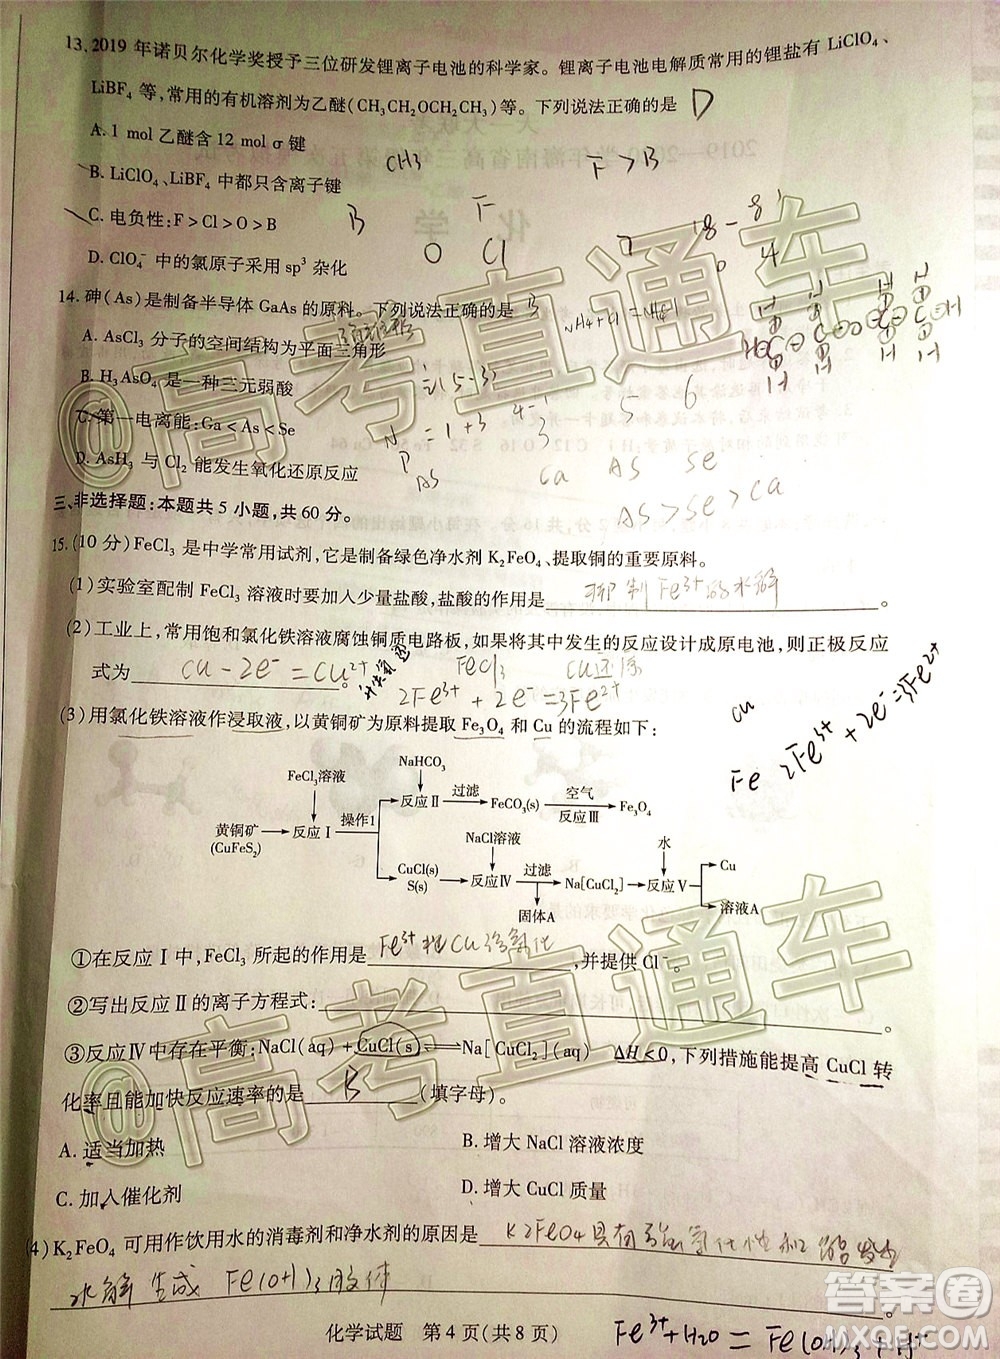 13. 2019 年诺贝尔化学奖授予三位研发锂离子电池的科学家。锂离子电池电解质常用的锂盐有 LiClO₄、
LiBF₄ 等，常用的有机溶剂为乙醚(CH₃CH₂OCH₂CH₃)等。下列说法正确的是 D
A. 1 mol 乙醚含 12 mol σ 键
B. LiClO₄、LiBF₄ 中都只含离子键
C. 电负性：F＞Cl＞O＞B
D. ClO₄⁻ 中的氯原子采用 sp³ 杂化
CH3
F > B
B F
O Cl
14. 砷(As)是制备半导体 GaAs 的原料。下列说法正确的是 B
A. AsCl₃ 分子的空间结构为平面三角形
B. H₃AsO₄ 是一种三元弱酸
C. 第一电离能：Ga＜As＜Se
D. AsH₃ 与 Cl₂ 能发生氧化还原反应
N
P
As
As Se
As > Se > Ca
三、非选择题：本题共 5 小题，共 60 分。
15. (10 分)FeCl₃ 是中学常用试剂，它是制备绿色净水剂 K₂FeO₄、提取铜的重要原料。
(1)实验室配制 FeCl₃ 溶液时要加入少量盐酸，盐酸的作用是 抑制Fe³⁺的水解 。
(2)工业上，常用饱和氯化铁溶液腐蚀铜质电路板，如果将其中发生的反应设计成原电池，则正极反应
式为 Cu - 2e⁻ = Cu²⁺ 。
FeCl3 Cu还原
2Fe³⁺ + 2e⁻ = 3Fe²⁺
Cu
Fe 2Fe³⁺ + 2e⁻ = 3Fe²⁺
(3)用氯化铁溶液作浸取液，以黄铜矿为原料提取 Fe₃O₄ 和 Cu 的流程如下：
FeCl₃溶液 NaHCO₃
反应Ⅱ 过滤 FeCO₃(s) 空气 反应Ⅲ Fe₃O₄
黄铜矿 (CuFeS₂) 反应Ⅰ 操作1
NaCl溶液 水
CuCl(s) S(s) 反应Ⅳ 过滤 Na[CuCl₂] 反应Ⅴ Cu
固体A 溶液A
①在反应Ⅰ中，FeCl₃ 所起的作用是 Fe³⁺把Cu给氧化 ，并提供 Cl⁻。
②写出反应Ⅱ的离子方程式： 。
③反应Ⅳ中存在平衡：NaCl(aq)+CuCl(s)⇌Na[CuCl₂](aq) ΔH<0，下列措施能提高 CuCl 转
化率且能加快反应速率的是 B (填字母)。
A. 适当加热 B. 增大 NaCl 溶液浓度
C. 加入催化剂 D. 增大 CuCl 质量
(4)K₂FeO₄ 可用作饮用水的消毒剂和净水剂的原因是 K2FeO4具有强氧化性和能发生
水解生成Fe(OH)3胶体 。
化学试题 第 4 页(共 8 页)
Fe³⁺ + H2O = Fe(OH)3 + H⁺
@高考直通车
@高考直通车
答案卷